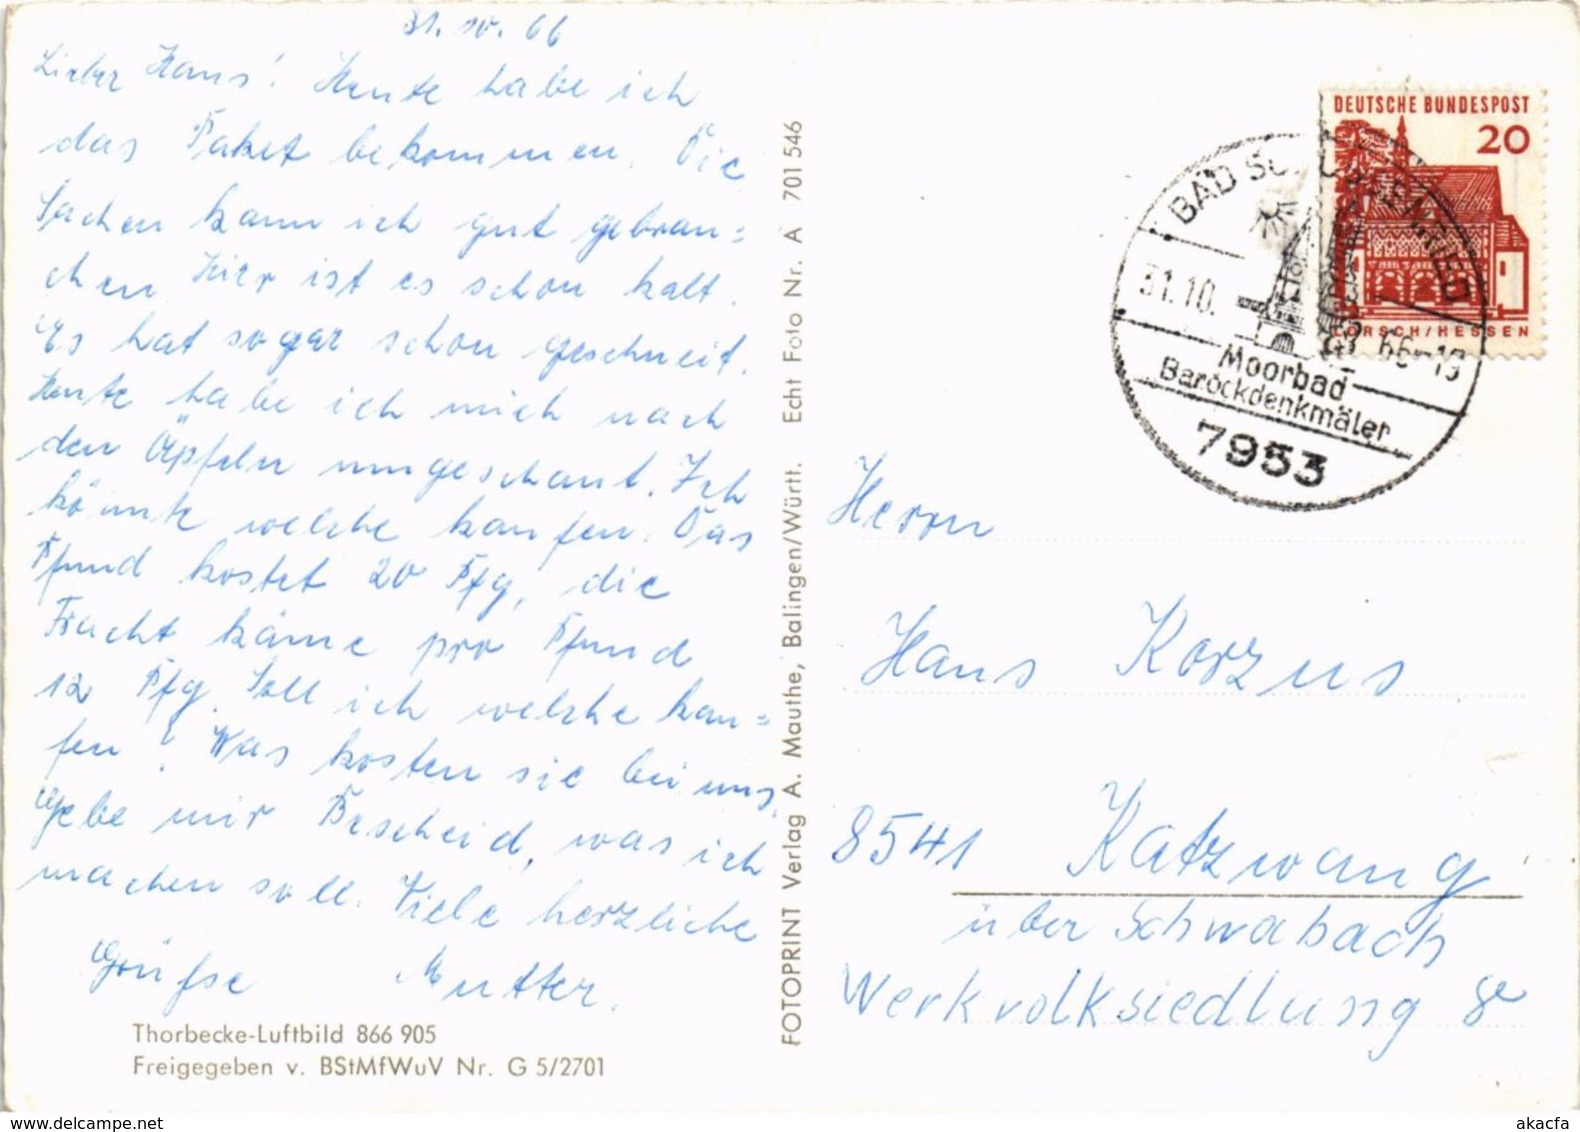 31.10.66
Lieber Hans! Heute habe ich
das Paket bekommen. Die
Sachen kann ich gut gebrau=
chen. Hier ist es schon kalt.
Es hat sogar schon geschneit.
Heute habe ich mich nach
den Äpfeln umgeschaut. Ich
könnte welche kaufen. Das
Pfund kostet 20 Pfg, die
Fracht käme pro Pfund
12 Pfg. Soll ich welche kau=
fen? Was kosten sie bei uns,
gebe mir Bescheid, was ich
machen soll. Viele herzliche
Grüße Mutter.
Thorbecke-Luftbild 866 905
Freigegeben v. BStMfWuV Nr. G 5/2701
FOTOPRINT Verlag A. Mauthe, Balingen/Württ. Echt Foto Nr. A 701 546
DEUTSCHE BUNDESPOST
20
LORSCH/HESSEN
BAD SCHUSSENRIED
31.10.66-19
Moorbad
Barockdenkmäler
7953
Herrn
Hans Korzus
8541 Katzwang
über Schwabach
Werkvolksiedlung 8
www.delcampe.net
akacfa